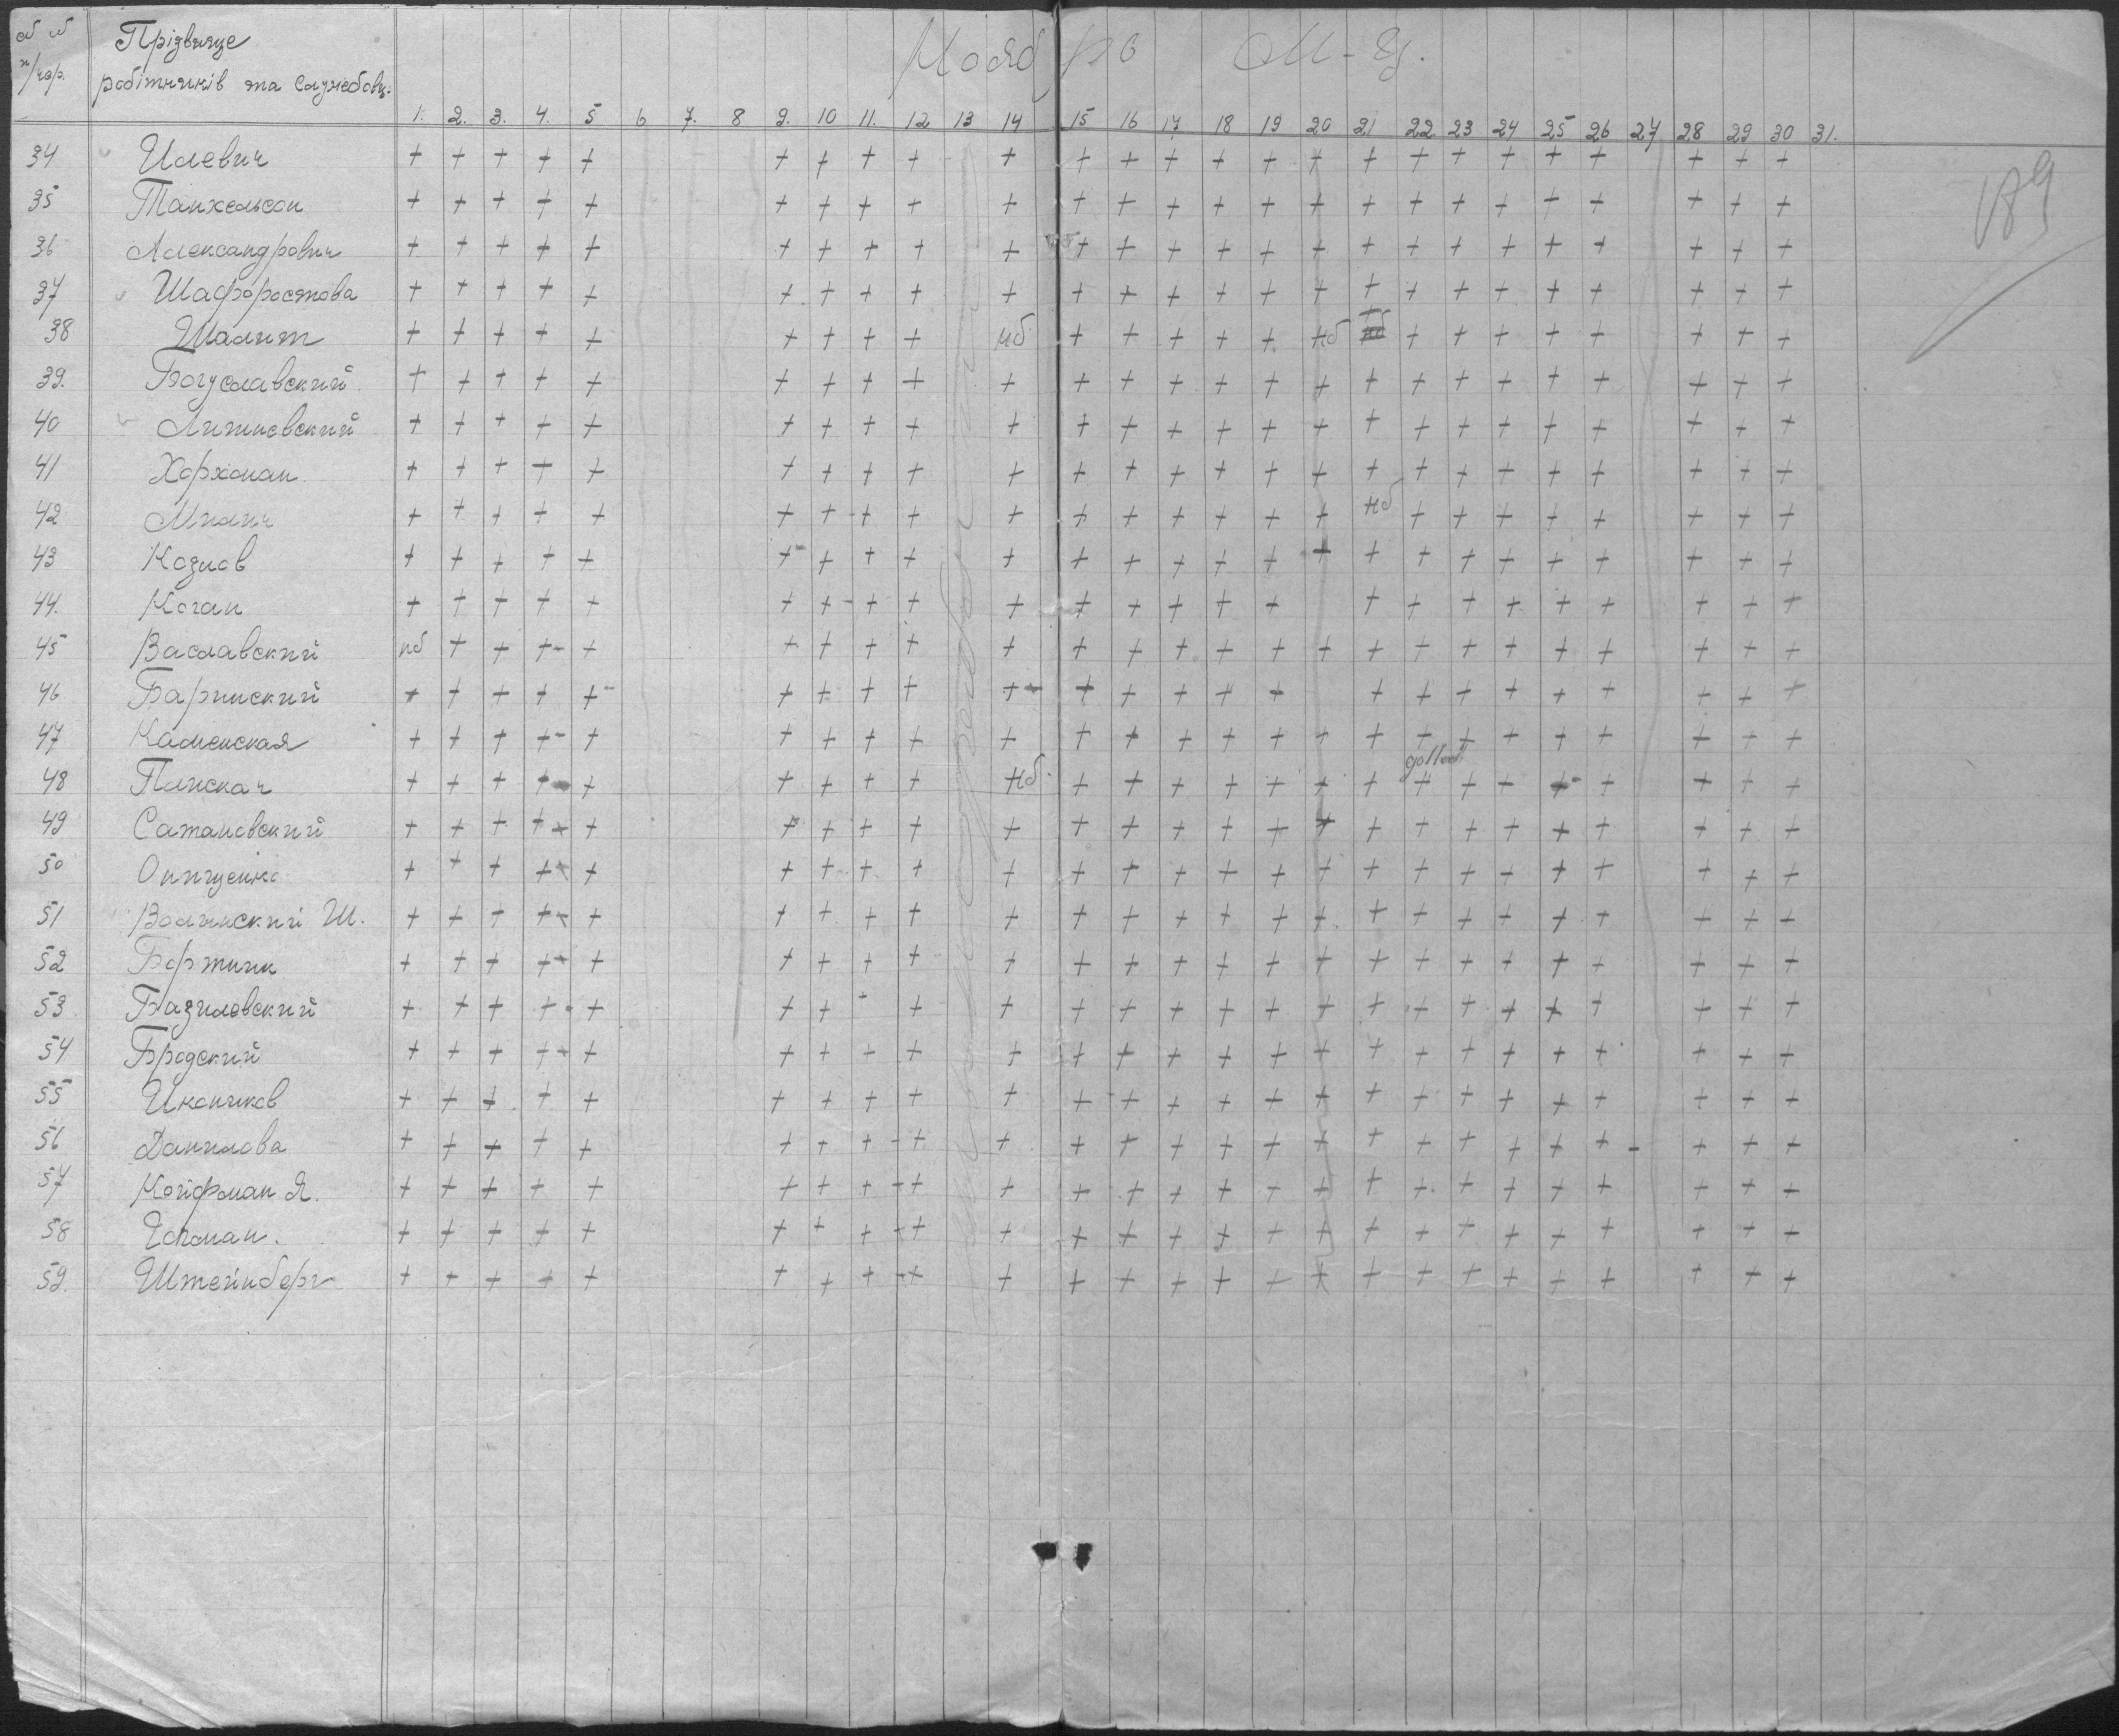 п/пор. Прізвище
робітників та службовц.
1. 2. 3. 4. 5 6 7. 8 9. 10 11. 12 13 14 15 16 17 18 19 20 21 22 23 24 25 26 27 28 29 30 31.
189
34 Илевич + + + + + + + + + + + + + + + + + + + + + + + + +
35 Танхельсон + + + + + + + + + + + + + + + + + + + + + + + + +
36 Александрович + + + + + + + + + + + + + + + + + + + + + + + + +
37 Шафоростова + + + + + + + + + + + + + + + + + + + + + + + + +
38 Шалит + + + + + + + + + нб + + + + + нб + + + + + + + + +
39. Богуславский + + + + + + + + + + + + + + + + + + + + + + + + +
40 Литиевский + + + + + + + + + + + + + + + + + + + + + + + + +
41 Хорхоман + + + + + + + + + + + + + + + + + + + + + + + + +
42 + + + + + + + + + + + + + + + + нб + + + + + + + +
43 Козлов + + + + + + + + + + + + + + + + + + + + + + + + +
44. Коган + + + + + + + + + + + + + + + + + + + + + + + +
45 Ваславский нб + + + + + + + + + + + + + + + + + + + + + + + +
46 Баринский + + + + + + + + + + + + + + + + + + + + + + + +
47 Каменская + + + + + + + + + + + + + + + + + + + + + + + + +
48 Плискач + + + + + + + + + нб. + + + + + + + + + + + + + + +
49 Сатановский + + + + + + + + + + + + + + + + + + + + + + + + +
50 Онищенко + + + + + + + + + + + + + + + + + + + + + + + + +
51 Волынский Ш. + + + + + + + + + + + + + + + + + + + + + + + + +
52 Бортник + + + + + + + + + + + + + + + + + + + + + + + + +
53 Базилевский + + + + + + + - + + + + + + + + + + + + + + + + +
54 Бродский + + + + + + + + + + + + + + + + + + + + + + + + +
55 Иконников + + + + + + + + + + + + + + + + + + + + + + + + +
56 Данилова + + + + + + + + + + + + + + + + + + + + + + - + + +
57 Койфман Я. + + + + + + + + + + + + + + + + + + + + + + + + +
58 Гохман. + + + + + + + + + + + + + + + + + + + + + + + + +
59. Штейнберг + + + + + + + + + + + + + + + + + + + + + + + + +